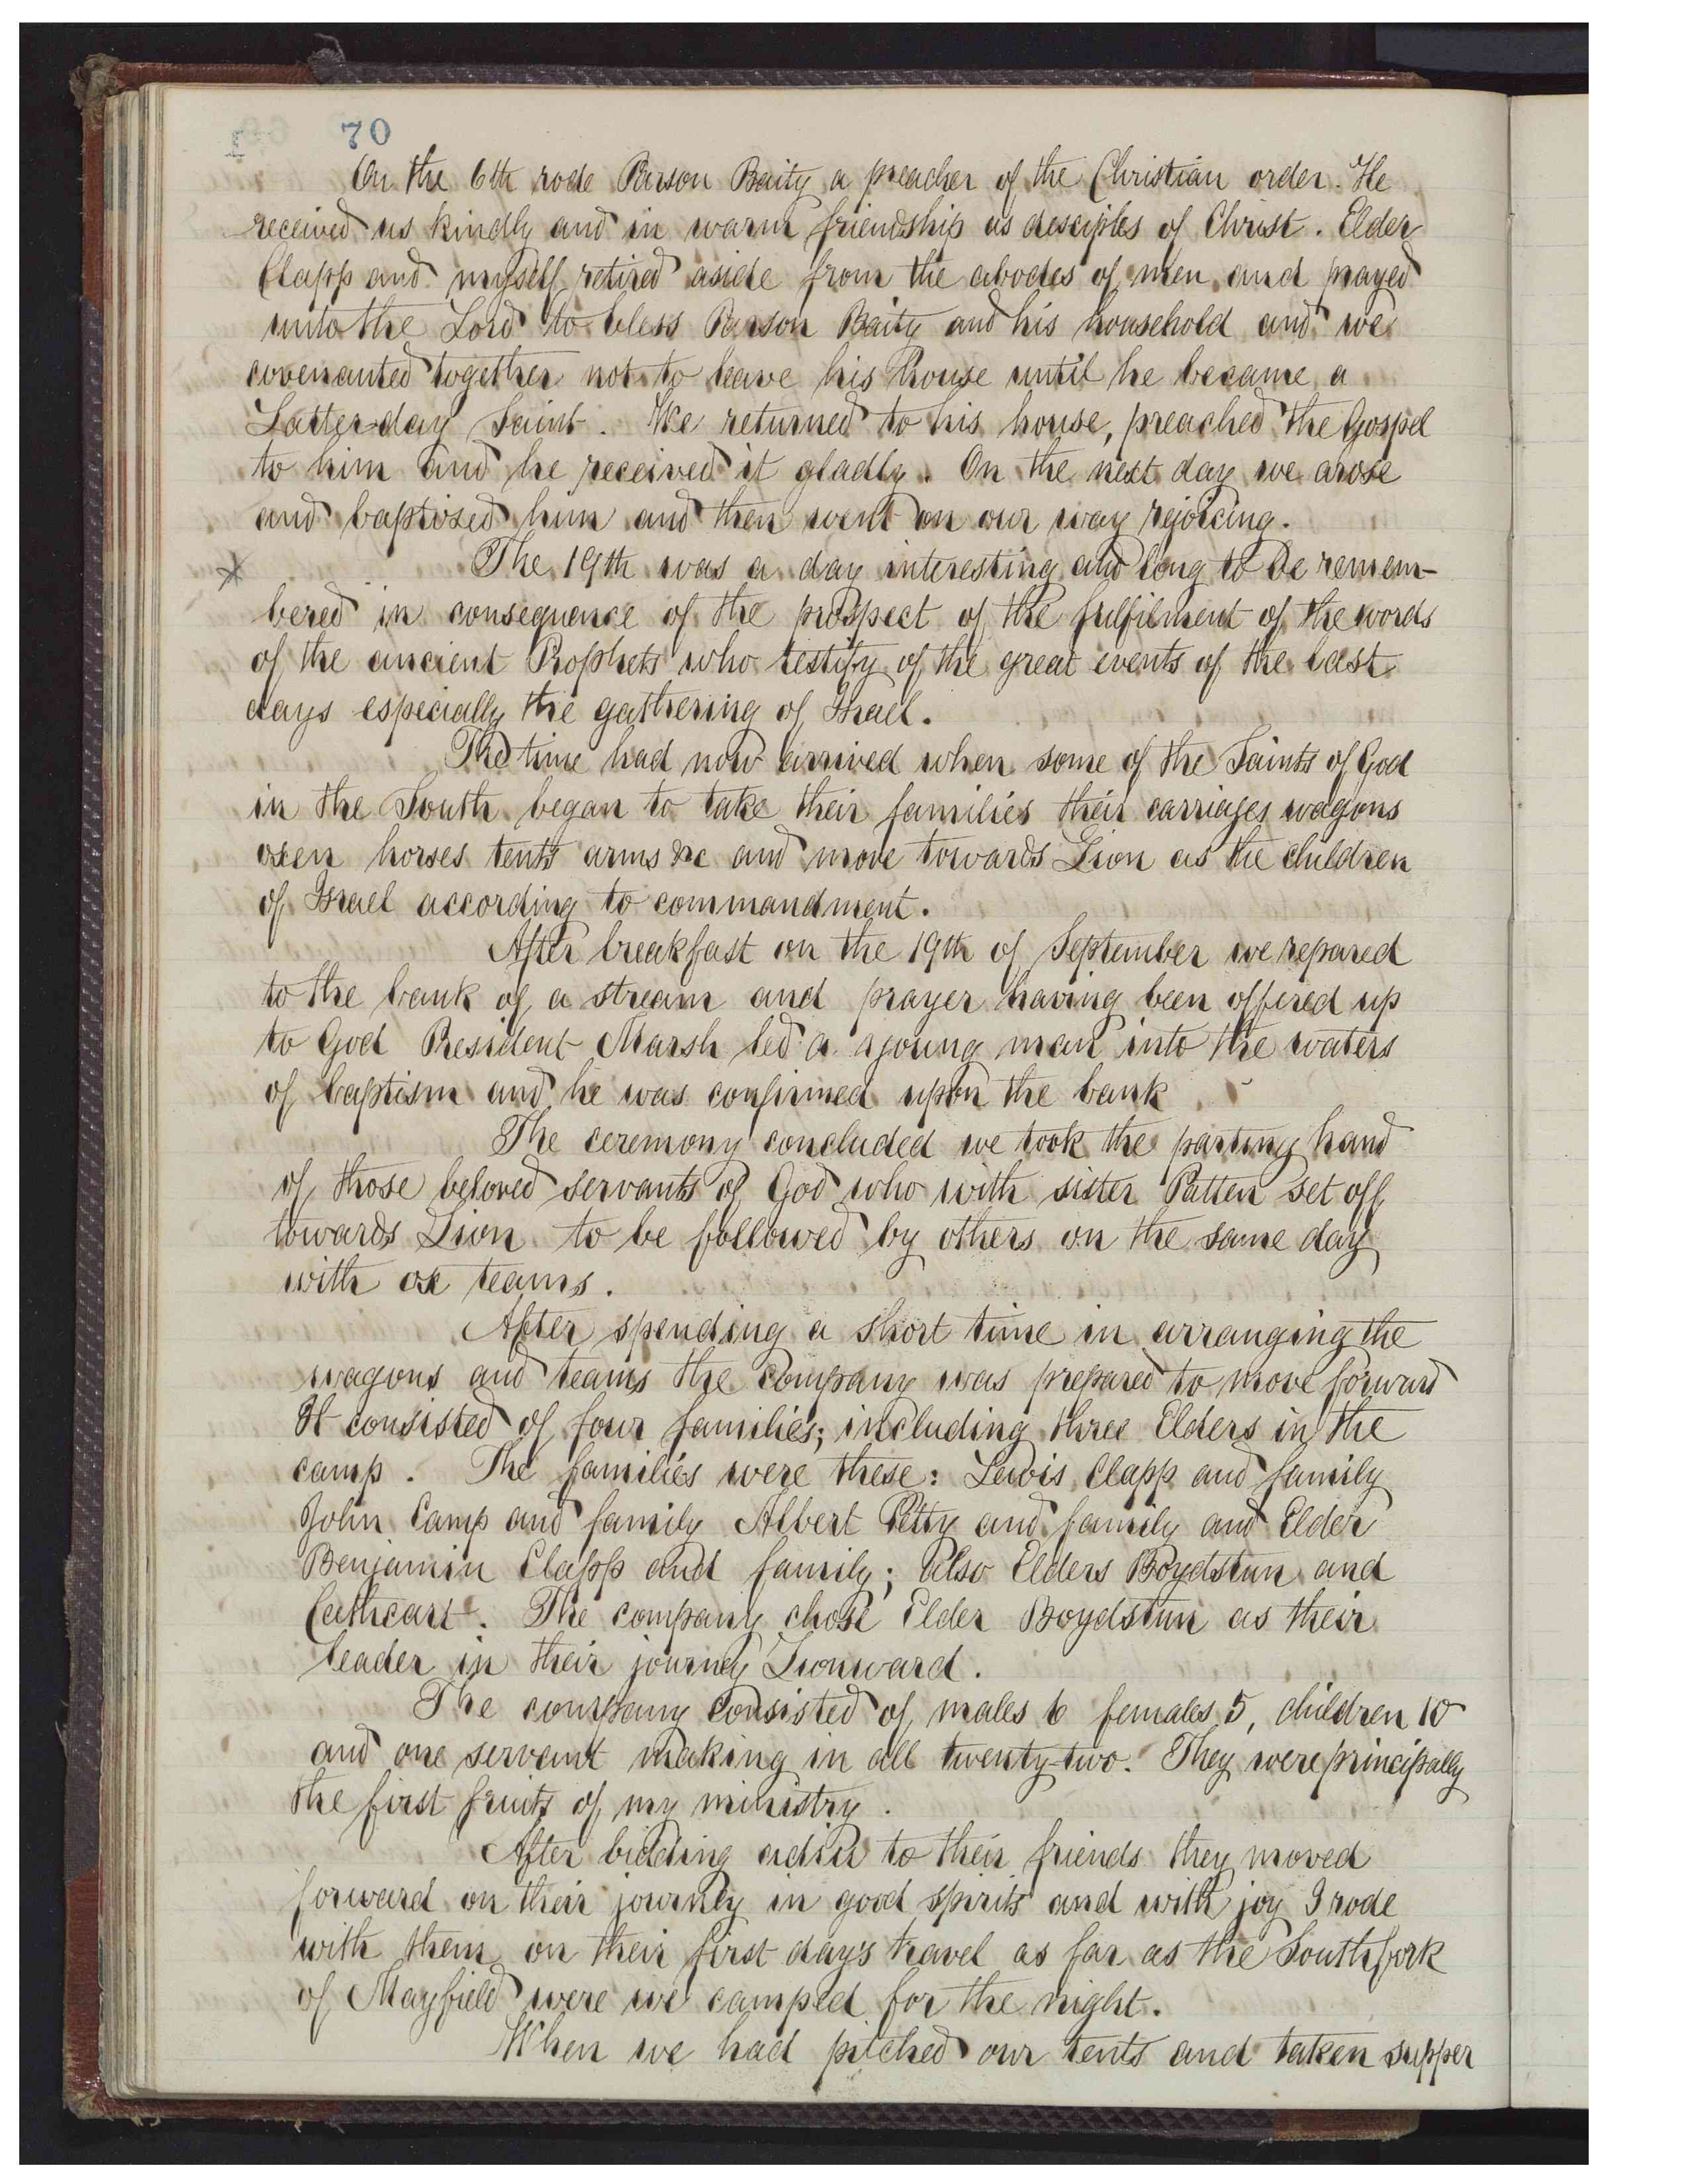 70
On the 6th rode Parson Baity a preacher of the Christian order. He
received us kindly and in warm friendship as desciples of Christ. Elder
Clapp and myself retired aside from the abodes of men and prayed
unto the Lord to bless Parson Baity and his household and we
covenanted together not to leave his house until he became a
Latter-day Saint. We returned to his house, preached the Gospel
to him and he received it gladly. On the next day we arose
and baptised him and then went on our way rejoicing.
The 19th was a day interesting and long to be remem-
bered in consequence of the prospect of the fulfilment of the words
of the ancient Prophets who testify of the great events of the last
days especially the gathering of Israel.
The time had now arrived when some of the Saints of God
in the South began to take their families their carriages wagons
oxen horses tents arms &c and move towards Zion as the children
of Israel according to commandment.
After breakfast on the 19th of September we repared
to the bank of a stream and prayer having been offered up
to God President Marsh led a young man into the waters
of baptism and he was confirmed upon the bank
The ceremony concluded we took the parting hand
of those beloved servants of God who with sister Patten set off
towards Zion to be followed by others on the same day
with ox teams.
After spending a short time in arranging the
wagons and teams the company was prepared to move forward
It consisted of four families; including three Elders in the
camp. The families were these: Lewis Clapp and family
John Camp and family Albert Petty and family and Elder
Benjamin Clapp and family; also Elders Boydstun and
Cathcart. The company chose Elder Boydstun as their
leader in their journey Zionward.
The company consisted of males 6 females 5, children 10
and one servant making in all twenty-two. They were principally
the first fruits of my ministry.
After bidding adieu to their friends they moved
forward on their journey in good spirits and with joy I rode
with them on their first day's travel as far as the South fork
of Mayfield were we camped for the night.
When we had pitched our tents and taken supper